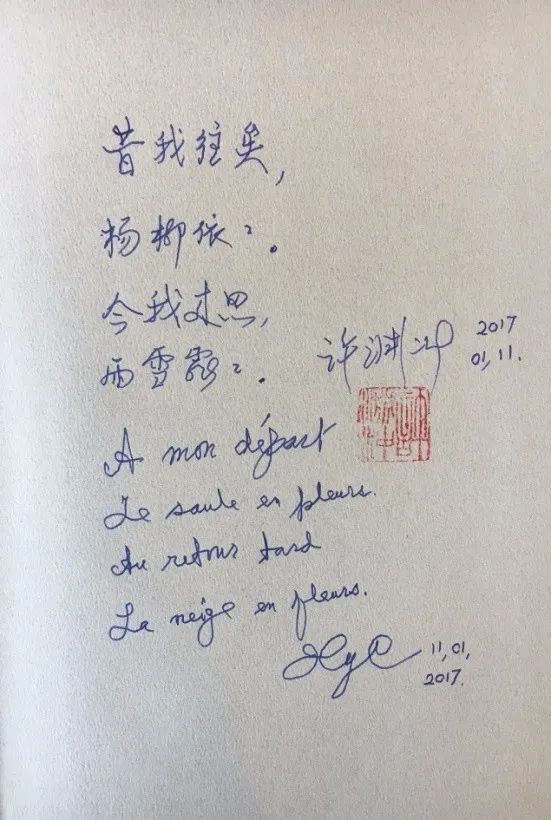 昔我往矣,
杨柳依〻。
今我来思,
雨雪霏〻。
许渊冲
2017
01,11.
A mon départ
Le saule en pleurs.
Au retour tard
La neige en fleurs.
XYC
11,01,
2017.